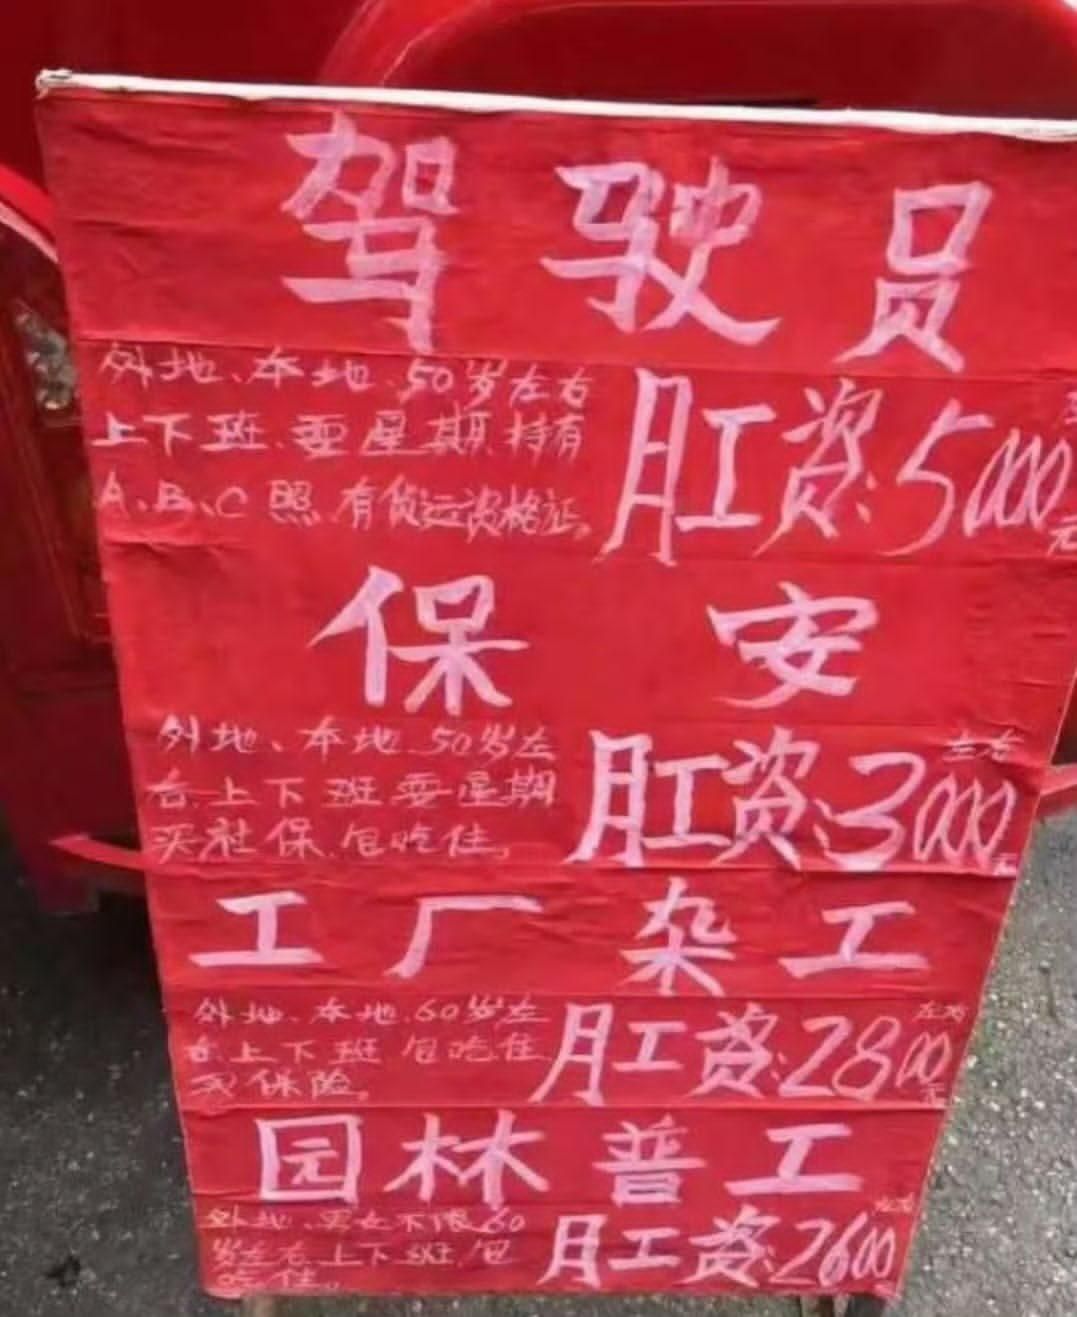 驾驶员
外地、本地.50岁左右
上下班.要星期.持有
A、B、C照.有货运资格证。
月工资:5000元
保安
外地、本地.50岁左
右.上下班要星期
买社保.包吃住。
月工资:3000元
左右
工厂杂工
外地、本地.60岁左
右上下班包吃住
买保险。
月工资:2800元
左右
园林普工
外地、男女不限60
岁左右.上下班.包
吃住。
月工资:2600
左右